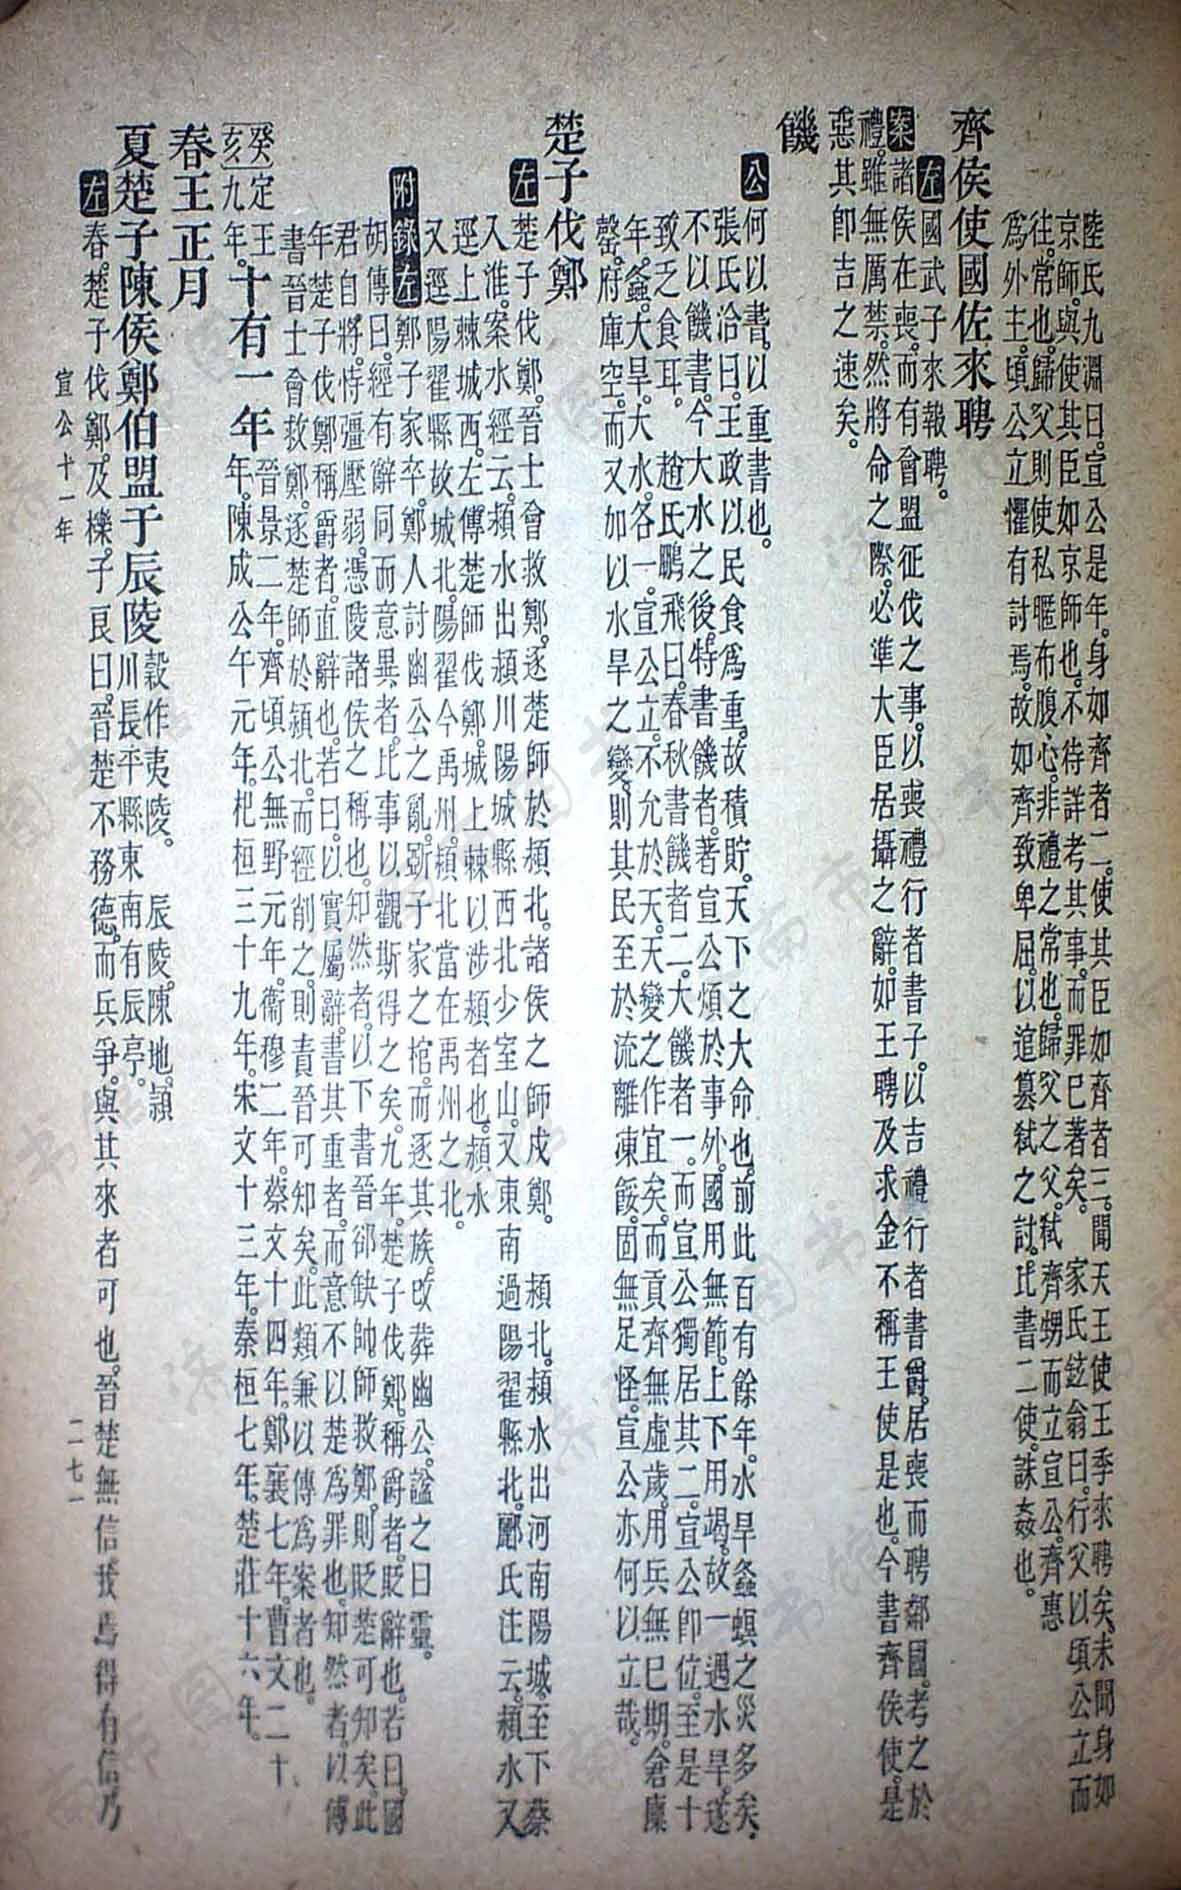 陸氏九淵曰。宣公是年。身如齊者二。使其臣如齊者三。聞天王使王季來聘矣。未聞身如
京師。與使其臣如京師也。不待詳考其事。而罪已著矣。 家氏鉉翁曰。行父以頃公立而
往。常也。歸父則使私暱布腹心。非禮之常也。歸父之父。弒齊甥而立宣公。齊惠
爲外主。頃公立懼有討焉。故如齊致卑屈。以逭簒弒之討。比書二使。誅姦也。
齊侯使國佐來聘
左 國武子來報聘。
案 諸侯在喪。而有會盟征伐之事。以喪禮行者書子。以吉禮行者書爵。居喪而聘鄰國。考之於
禮。雖無厲禁。然將命之際。必準大臣居攝之辭。如王聘及求金不稱王使是也。今書齊侯使。是
惡其卽吉之速矣。
饑
公 何以書。以重書也。
張氏洽曰。王政以民食爲重。故積貯。天下之大命也。前此百有餘年。水旱螽螟之災多矣。
不以饑書。今大水之後。特書饑者。著宣公煩於事外。國用無節。上下用竭。故一遇水旱。遂
致乏食耳。 趙氏鵬飛曰。春秋書饑者二。大饑者一。而宣公獨居其二。宣公卽位。至是十
年。螽。大旱。大水。各一。宣公立。不允於天。天變之作宜矣。而貢齊無虛歲。用兵無已期。倉廩
罄。府庫空。而又加以水旱之變。則其民至於流離凍餒。固無足怪。宣公亦何以立哉。
楚子伐鄭
左 楚子伐鄭。晉士會救鄭。逐楚師於潁北。諸侯之師戍鄭。 潁北。潁水出河南陽城。至下蔡
入淮。案水經云。潁水出潁川陽城縣西北少室山。又東南過陽翟縣北。酈氏注云。潁水又
逕上棘城西。左傳楚師伐鄭。城上棘以涉潁者也。潁水
又逕陽翟縣故城北。陽翟今禹州。潁北當在禹州之北。
附錄左 鄭子家卒。鄭人討幽公之亂。斲子家之棺。而逐其族。改葬幽公。謚之曰靈。
胡傳曰。經有辭同而意異者。比事以觀斯得之矣。九年。楚子伐鄭。稱爵者。貶辭也。若曰。國
君自將。恃彊壓弱。憑陵諸侯之稱也。知然者。以下書晉郤缺帥師救鄭。則貶楚可知矣。此
年楚子伐鄭稱爵者。直辭也。若曰。以實屬辭。書其重者。而意不以楚爲罪也。知然者。以傳
書晉士會救鄭。逐楚師於潁北。而經削之。則責晉可知矣。此類兼以傳爲案者也。
癸亥 定王九年。 十有一年 晉景二年。齊頃公無野元年。衞穆二年。蔡文十四年。鄭襄七年。曹文二十
年。陳成公午元年。杞桓三十九年。宋文十三年。秦桓七年。楚莊十六年。
春王正月
夏楚子陳侯鄭伯盟于辰陵 穀作夷陵。 辰陵。陳地。潁
川長平縣東南有辰亭。
左 春。楚子伐鄭。及櫟。子良曰。晉楚不務德。而兵爭。與其來者可也。晉楚無信。我焉得有信。乃
宣公十一年
二七一